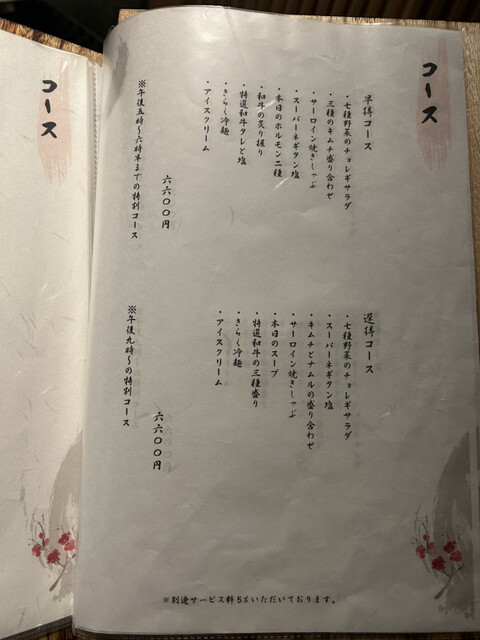 コース
早得コース
・七種野菜のチョレギサラダ
・三種のキムチ盛り合わせ
・サーロイン焼きしゃぶ
・スーパーネギタン塩
・本日のホルモン二種
・和牛の炙り握り
・特選和牛タレと塩
・きらく冷麺
・アイスクリーム
六六〇〇円
※午後五時〜六時半までの特別コース
遅得コース
・七種野菜のチョレギサラダ
・スーパーネギタン塩
・キムチとナムルの盛り合わせ
・サーロイン焼きしゃぶ
・本日のスープ
・特選和牛の三種盛り
・きらく冷麺
・アイスクリーム
六六〇〇円
※午後九時〜の特別コース
※別途サービス料5%いただいております。
コース